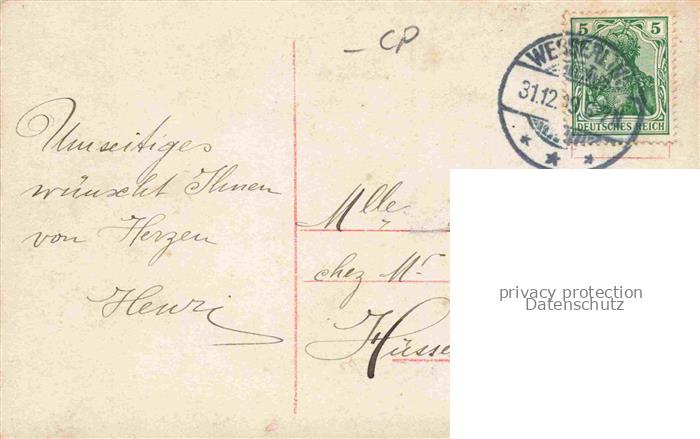 CP
WESSERL
31.12.
5 5
DEUTSCHES REICH
Umseitiges
wünscht Ihnen
von Herzen
Henri
Mlle
chez Mr
Hüsse
privacy protection
Datenschutz